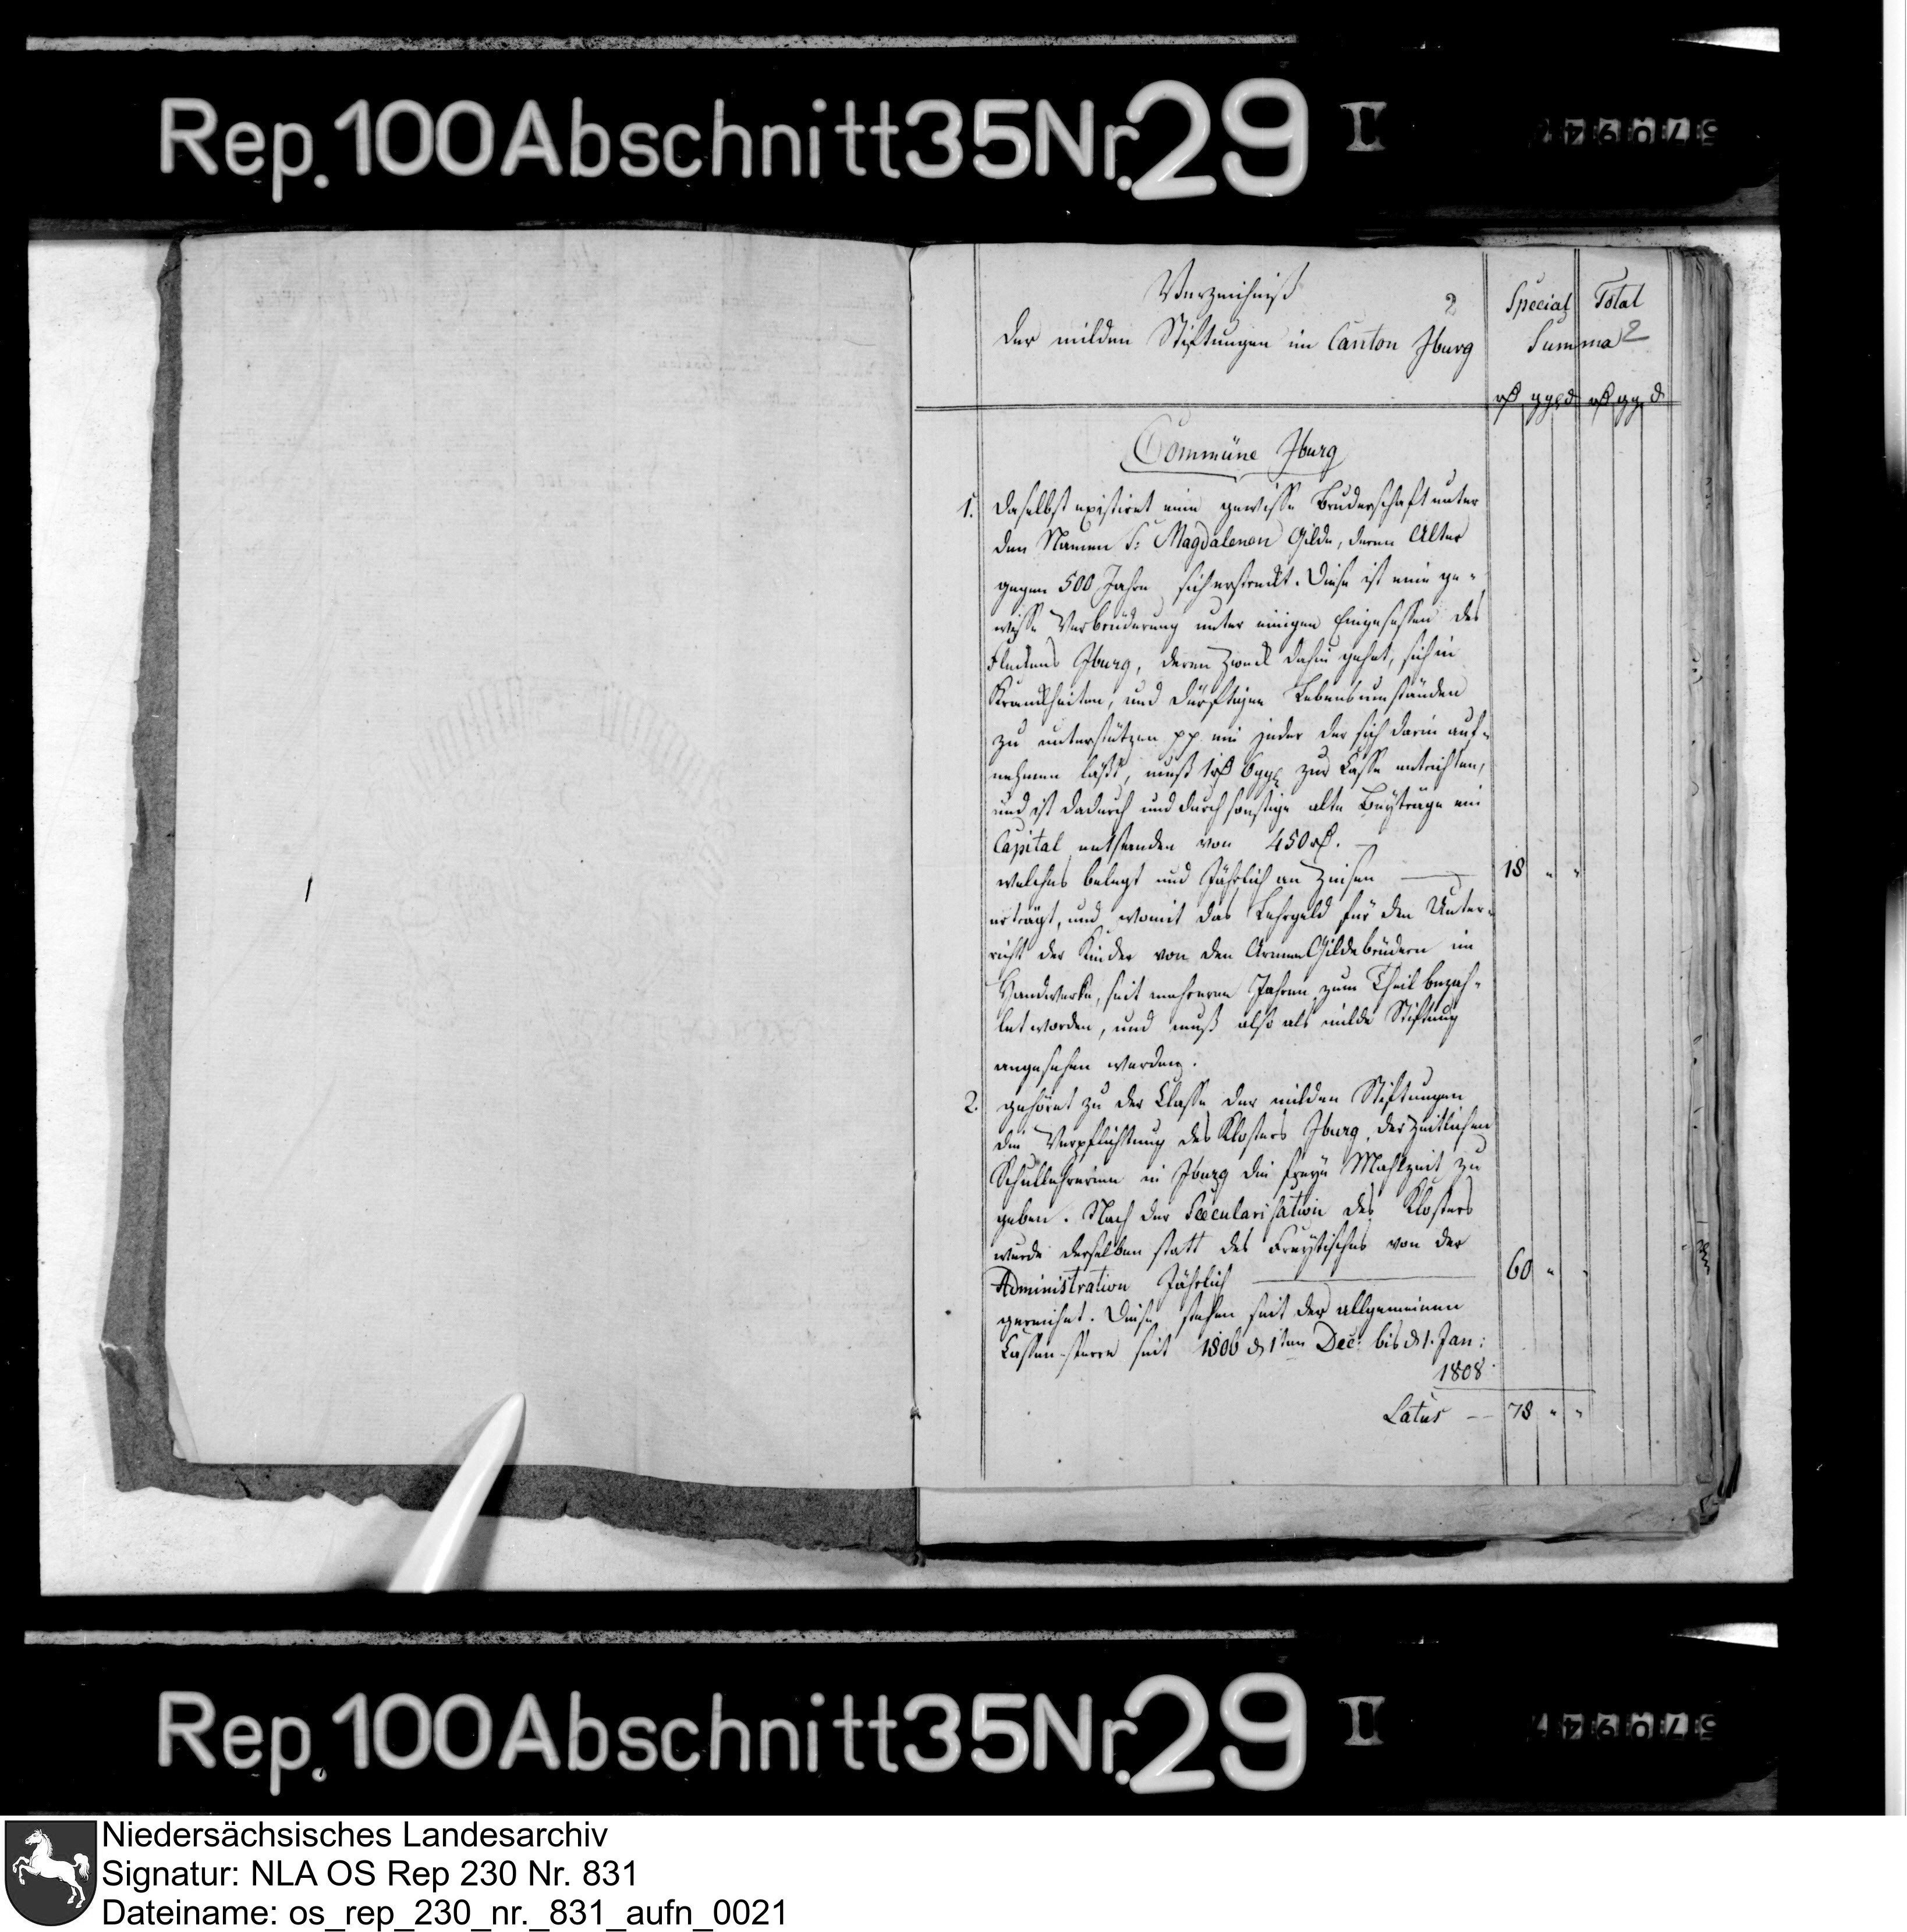 Rep. 100 Abschnitt 35 Nr. 29 I
57094
Verzeichniß
2
der milden Stiftungen im Canton Iburg
Special Total
Summa 2
rß ggl d rß gg d
Commüne Iburg
1. Daselbst existiret eine gewisse Bruderschaft unter
den Namen S: Magdalenen Gilde, deren Alter
gegen 500 Jahre sich erstreckt. Diese ist eine ge-
wisse Verbrüderung unter einigen Eingesessen des
Fleckens Iburg, deren Zweck dahin gehet, sich in
Krankheiten, und dürftigen Lebensumständen
zu unterstützen pp. ein jeder der sich darin auf-
nehmen läßt, muß 1 rß 6 ggl zur Casse entrichten,
und ist dadurch und durch sonstige alte Beyträge ein
Capital entstanden von 450 rß. —
welches belegt und Jährlich an Zinsen — 18 " "
erträgt, und womit das Lehrgeld für den Unter-
richt der Kinder von den Armen Gildebrüdern im
Handwerke, seit mehreren Jahren zum Theil bezah-
let worden, und muß also als milde Stiftung
angesehen werden.
2. gehöret zu der Classe der milden Stiftungen
die Verpflichtung des Klosters Iburg, der zeitlichen
Schullehrerinn in Iburg die freye Mahlzeit zu
geben. Nach der Secularisation des Klosters
wurde derselben statt des Freytisches von der
Administration Jährlich — 60 " "
gereichet. Diese stehen seit der allgemeinen
Cassen-sperre seit 1806 d 1ten Dec: bis d 1. Jan:
1808
Latus — 78 " "
1
Rep. 100 Abschnitt 35 Nr. 29 I
57094
Niedersächsisches Landesarchiv
Signatur: NLA OS Rep 230 Nr. 831
Dateiname: os_rep_230_nr._831_aufn_0021